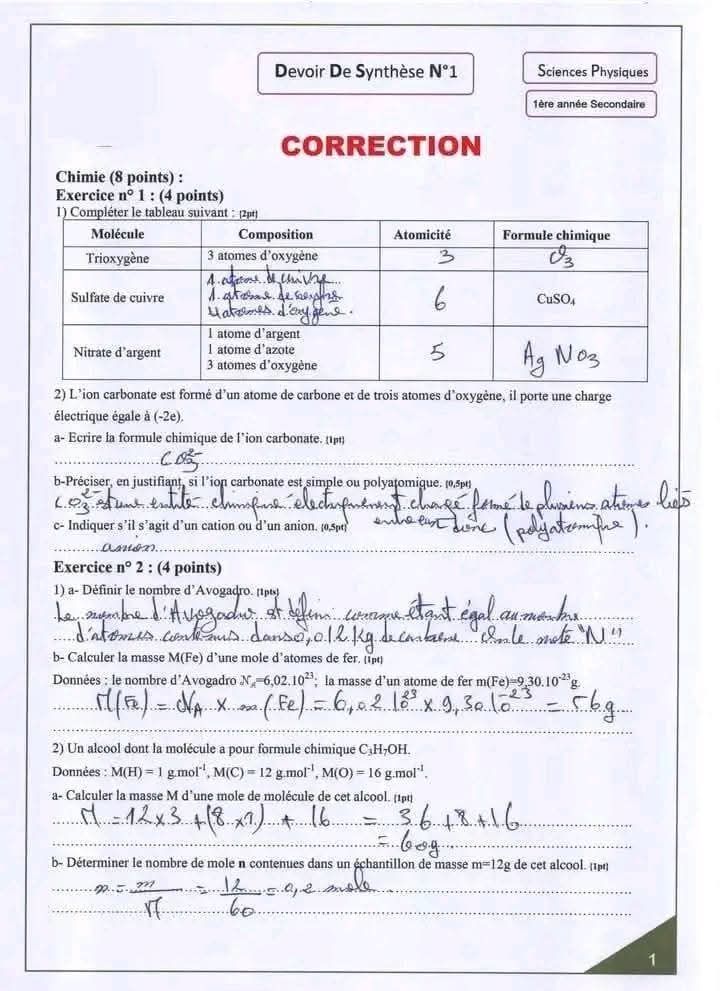 Devoir De Synthèse N°1
Sciences Physiques
1ère année Secondaire
CORRECTION
Chimie (8 points) :
Exercice n° 1 : (4 points)
1) Compléter le tableau suivant : (2pt)
Molécule Composition Atomicité Formule chimique
Trioxygène 3 atomes d'oxygène 3 O₃
Sulfate de cuivre 1 atome de cuivre 6 CuSO₄
1 atome de soufre
4 atomes d'oxygène.
Nitrate d'argent 1 atome d'argent 5 Ag NO₃
1 atome d'azote
3 atomes d'oxygène
2) L'ion carbonate est formé d'un atome de carbone et de trois atomes d'oxygène, il porte une charge
électrique égale à (-2e).
a- Ecrire la formule chimique de l'ion carbonate. (1pt)
CO₃²⁻
b-Préciser, en justifiant, si l'ion carbonate est simple ou polyatomique. (0,5pt)
CO₃²⁻ est une entité chimique électriquement chargé formé de plusieurs atomes liés
entre eux donc (polyatomique).
c- Indiquer s'il s'agit d'un cation ou d'un anion. (0,5pt)
anion
Exercice n° 2 : (4 points)
1) a- Définir le nombre d'Avogadro. (1pts)
Le nombre d'Avogadro est défini comme étant égal au nombre
d'atomes contenus dans 0,012 kg de carbone "N"
b- Calculer la masse M(Fe) d'une mole d'atomes de fer. (1pt)
Données : le nombre d'Avogadro 𝒩A=6,02.10²³; la masse d'un atome de fer m(Fe)=9,30.10⁻²³g
M(Fe) = NA × m(Fe) = 6,02 10²³ × 9,30 10⁻²³ = 56g
2) Un alcool dont la molécule a pour formule chimique C₃H₇OH.
Données : M(H) = 1 g.mol⁻¹, M(C) = 12 g.mol⁻¹, M(O) = 16 g.mol⁻¹.
a- Calculer la masse M d'une mole de molécule de cet alcool. (1pt)
M = 12×3 + (8 ×1) + 16 = 36 + 8 + 16
= 60g
b- Déterminer le nombre de mole n contenues dans un échantillon de masse m=12g de cet alcool. (1pt)
n = m/M = 12/60 = 0,2 mole
1